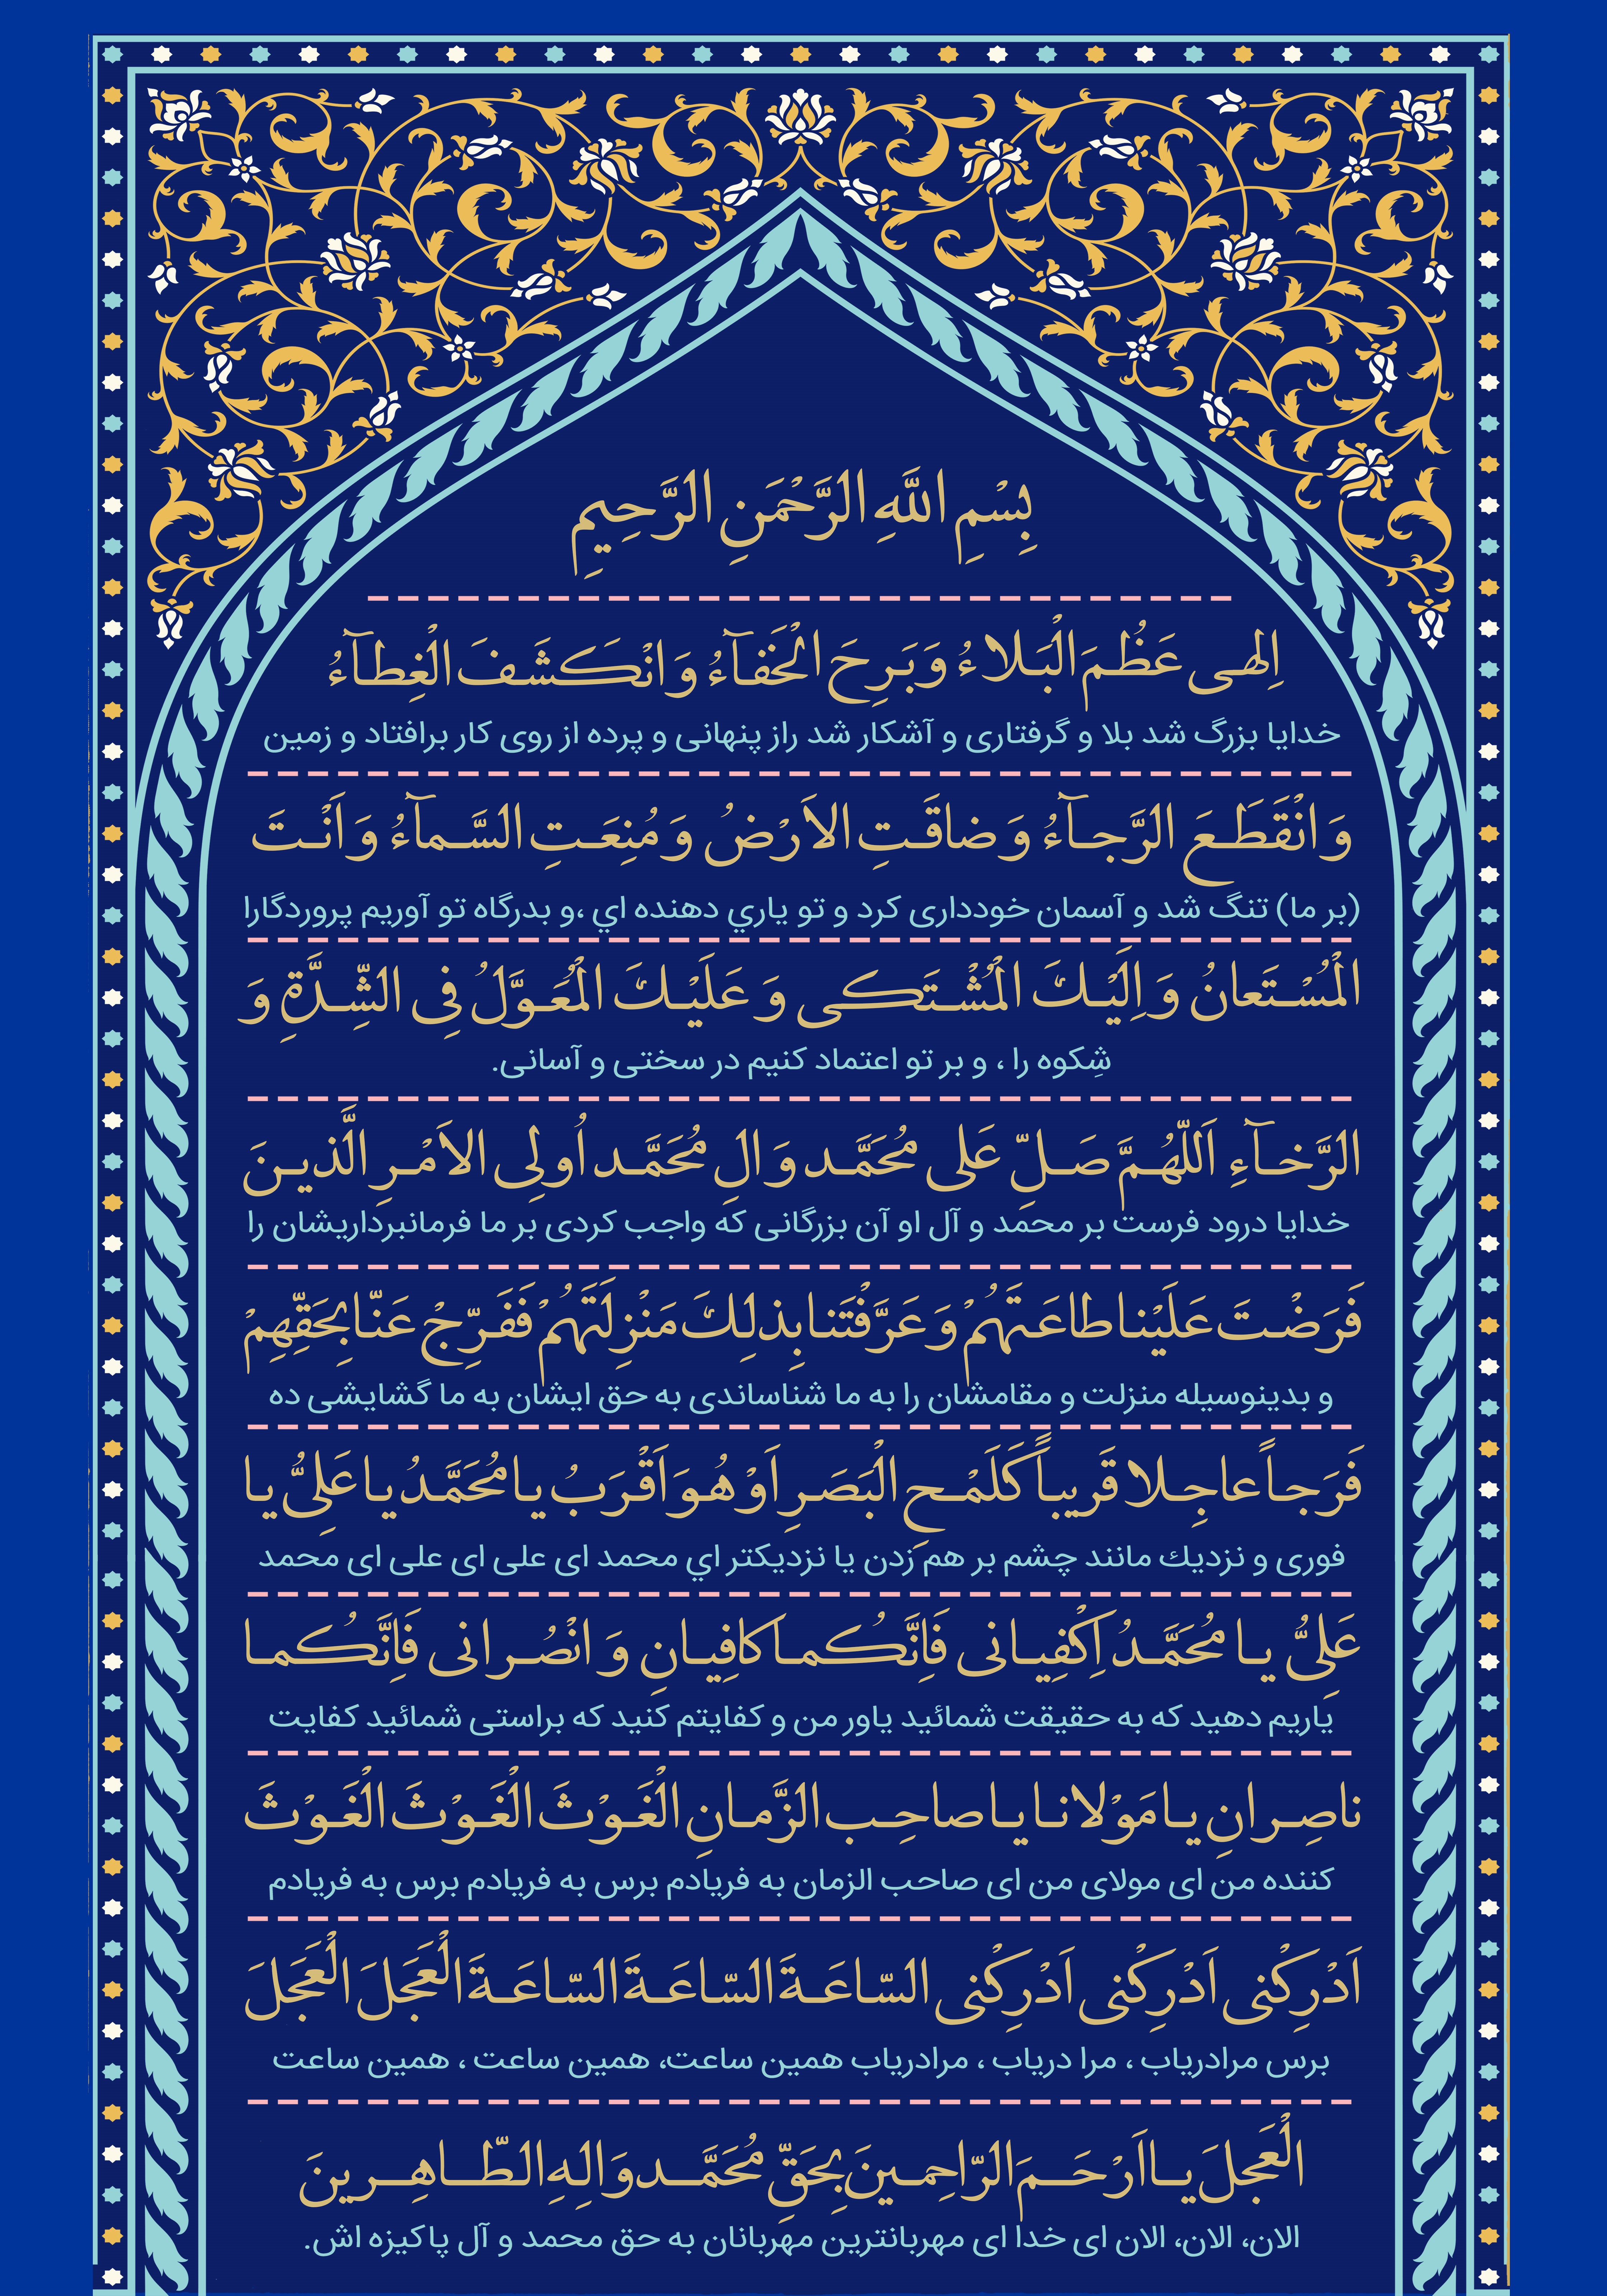 بِسْمِ اللَّهِ الرَّحْمَنِ الرَّحِيمِ
اِلهى عَظُمَ الْبَلاءُ وَ بَرِحَ الْخَفآءُ وَ انْكَشَفَ الْغِطآءُ
خدایا بزرگ شد بلا و گرفتاری و آشکار شد راز پنهانی و پرده از روی کار برافتاد و زمین
وَ انْقَطَعَ الرَّجآءُ وَ ضاقَتِ الاَرْضُ وَ مُنِعَتِ السَّمآءُ وَ اَنْتَ
(بر ما) تنگ شد و آسمان خودداری کرد و تو یاري دهنده اي ،و بدرگاه تو آوریم پروردگارا
الْمُسْتَعانُ وَ اِلَيْكَ الْمُشْتَكى وَ عَلَيْكَ الْمُعَوَّلُ فِى الشِّدَّةِ وَ
شِکوه را ، و بر تو اعتماد کنیم در سختی و آسانی.
الرَّخآءِ اَللّهُمَّ صَلِّ عَلى مُحَمَّد وَ الِ مُحَمَّد اُولِى الاَمْرِ الَّذينَ
خدایا درود فرست بر محمد و آل او آن بزرگانی که واجب کردی بر ما فرمانبرداریشان را
فَرَضْتَ عَلَيْنا طاعَتَهُمْ وَ عَرَّفْتَنا بِذلِكَ مَنْزِلَتَهُمْ فَفَرِّجْ عَنّا بِحَقِّهِمْ
و بدینوسیله منزلت و مقامشان را به ما شناساندی به حق ایشان به ما گشایشی ده
فَرَجاً عاجِلا قَريباً كَلَمْحِ الْبَصَرِ اَوْ هُوَ اَقْرَبُ يا مُحَمَّدُ يا عَلِىُّ يا
فوری و نزدیك مانند چشم بر هم زدن یا نزدیکتر اي محمد ای علی ای علی ای محمد
عَلِىُّ يا مُحَمَّدُ اِكْفِيانى فَاِنَّكُما كافِيانِ وَ انْصُرانى فَاِنَّكُما
یاریم دهید که به حقیقت شمائید یاور من و کفایتم کنید که براستی شمائید کفایت
ناصِرانِ يا مَوْلانا يا صاحِب الزَّمانِ الْغَوْثَ الْغَوْثَ الْغَوْثَ
کننده من ای مولای من ای صاحب الزمان به فریادم برس به فریادم برس به فریادم
اَدْرِكْنى اَدْرِكْنى اَدْرِكْنى السّاعَةَ السّاعَةَ السّاعَةَ الْعَجَلَ الْعَجَلَ
برس مرادریاب ، مرا دریاب ، مرادریاب همین ساعت، همین ساعت ، همین ساعت
الْعَجلَ يا اَرْحَمَ الرّاحِمينَ بِحَقِّ مُحَمَّد وَ الِهِ الطّاهِرينَ
الان، الان، الان ای خدا ای مهربانترین مهربانان به حق محمد و آل پاکیزه اش.